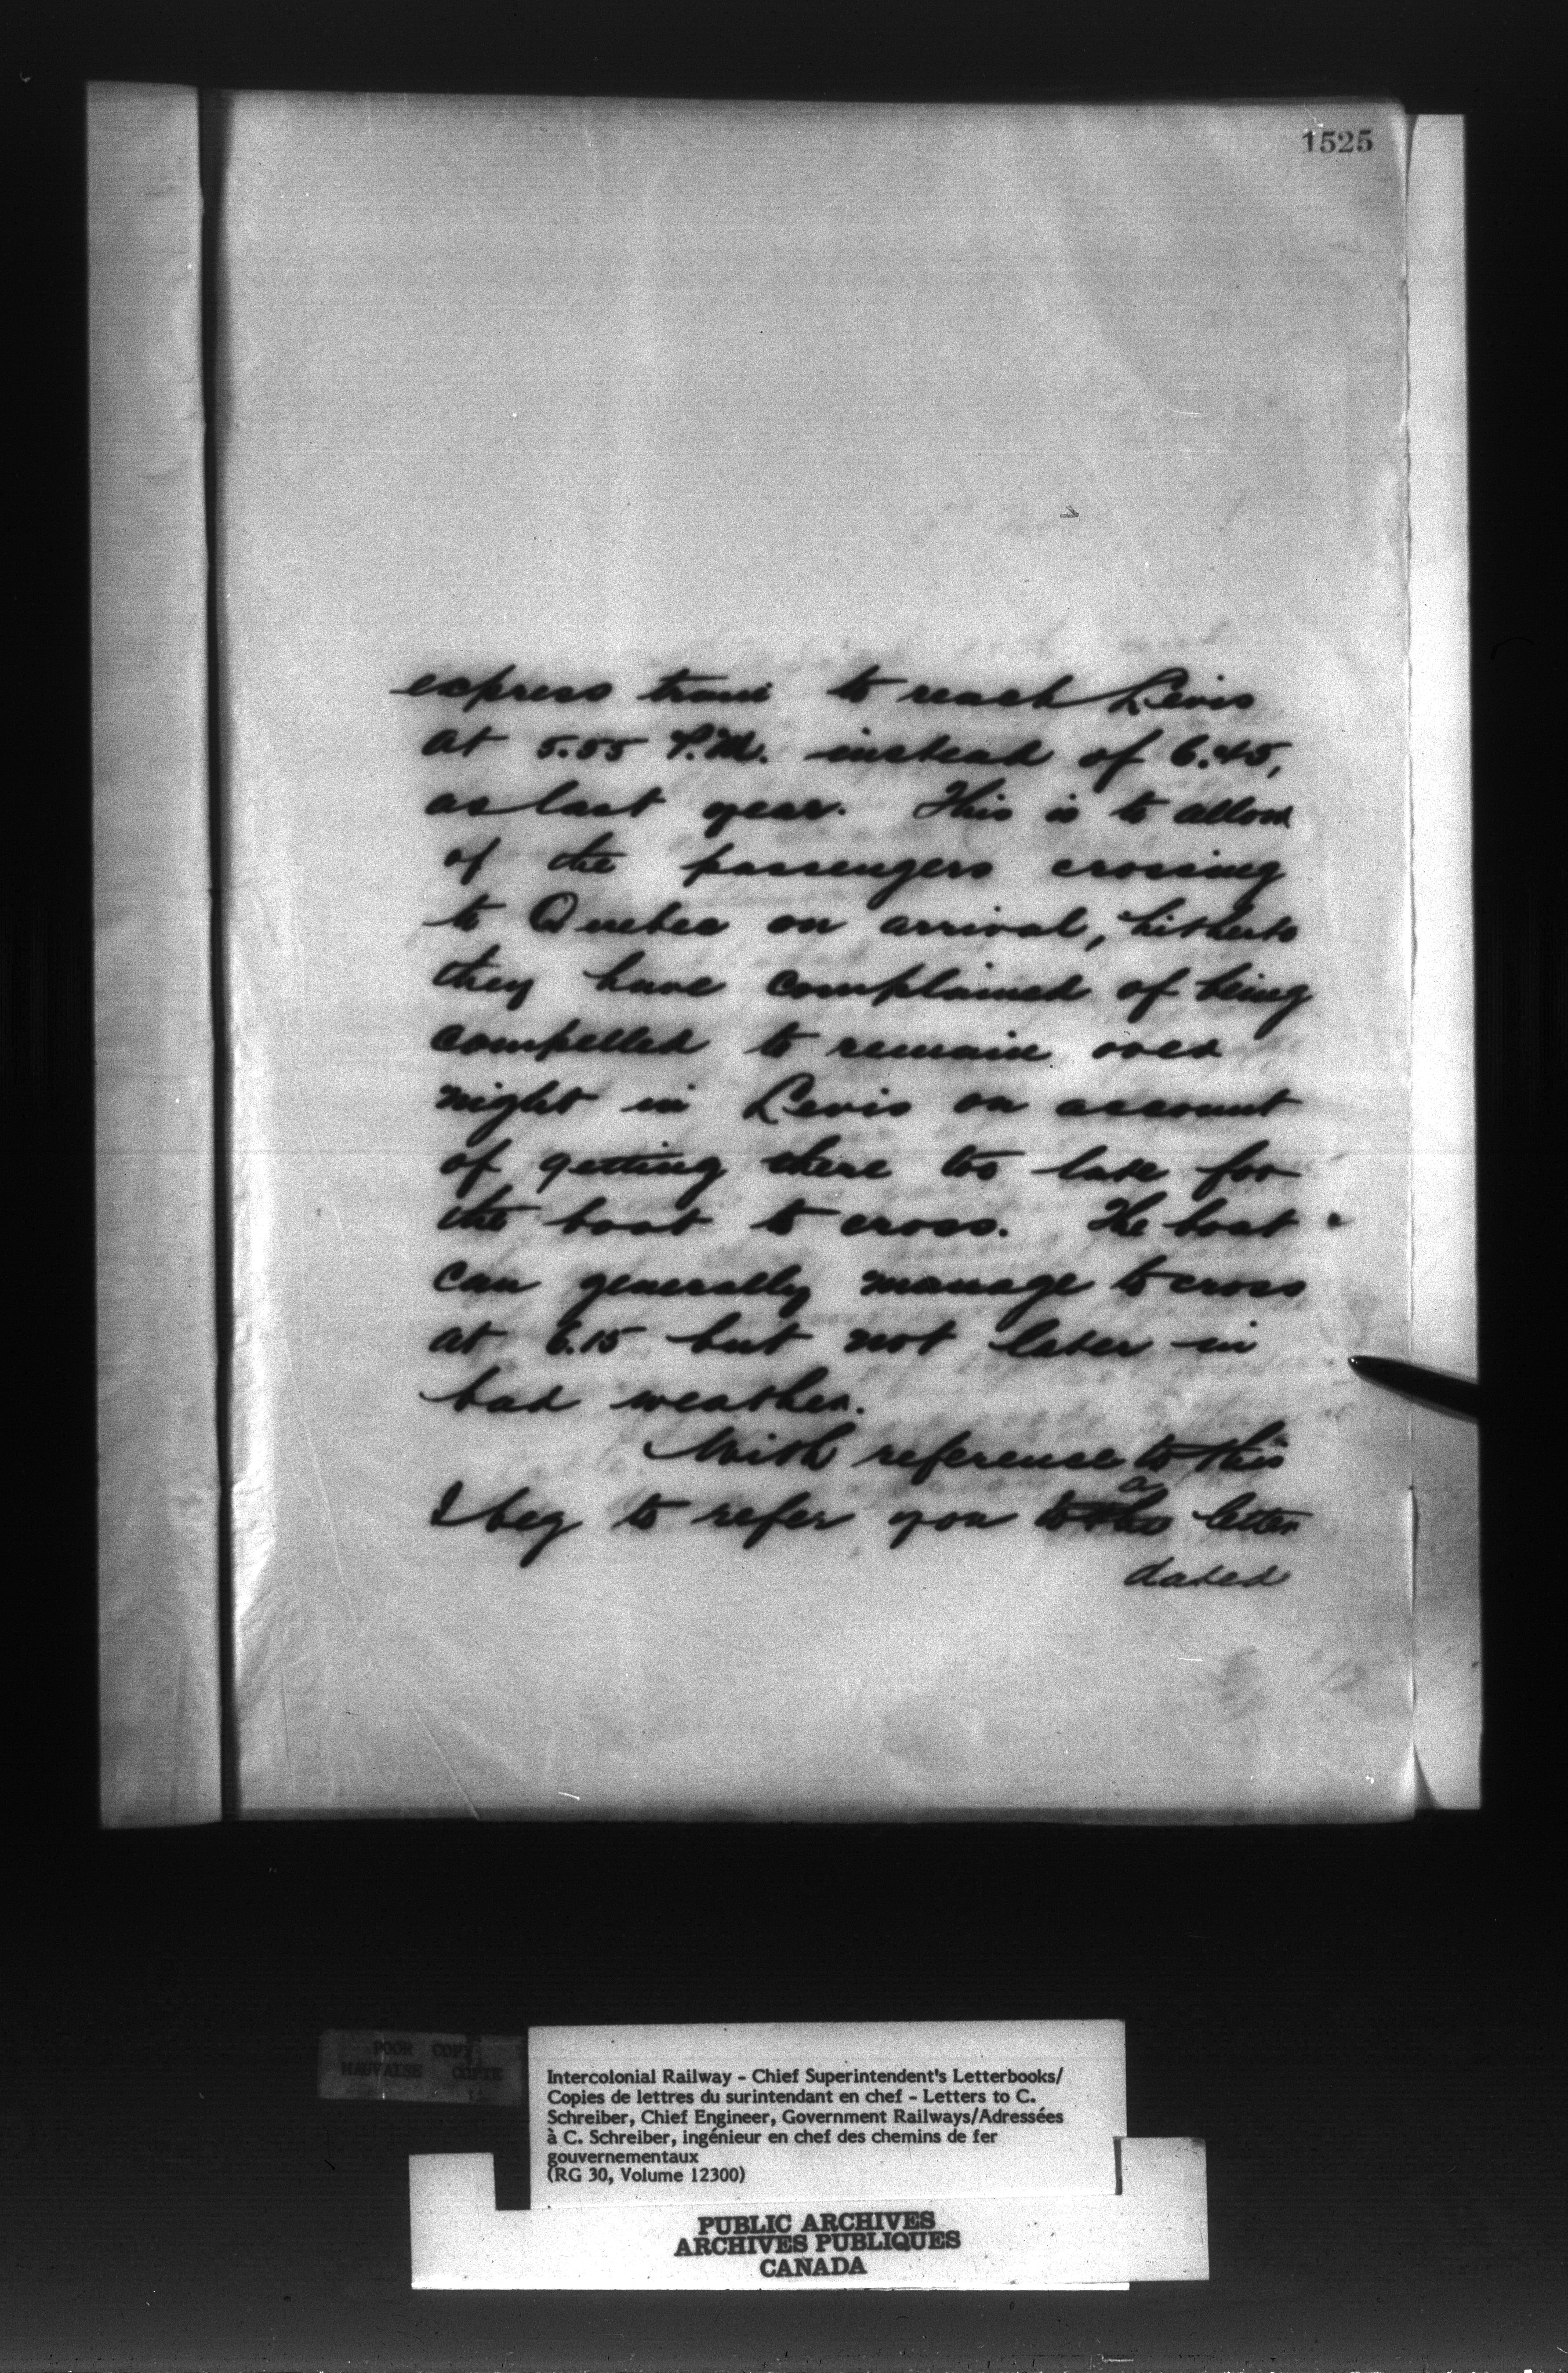 1525
express train to reach Levis
at 5.55 P.M. instead of 6.45,
as last year. This is to allow
of the passengers crossing
to Quebec on arrival, hitherto
they have complained of being
compelled to remain over
night in Levis on account
of getting there too late for
the boat to cross. The boat
can generally manage to cross
at 6.15 but not later in
bad weather.
With reference to this
a
I beg to refer you to the letter
dated
POOR COPY
MAUVAISE COPIE
Intercolonial Railway - Chief Superintendent's Letterbooks/
Copies de lettres du surintendant en chef - Letters to C.
Schreiber, Chief Engineer, Government Railways/Adressées
à C. Schreiber, ingénieur en chef des chemins de fer
gouvernementaux
(RG 30, Volume 12300)
PUBLIC ARCHIVES
ARCHIVES PUBLIQUES
CANADA